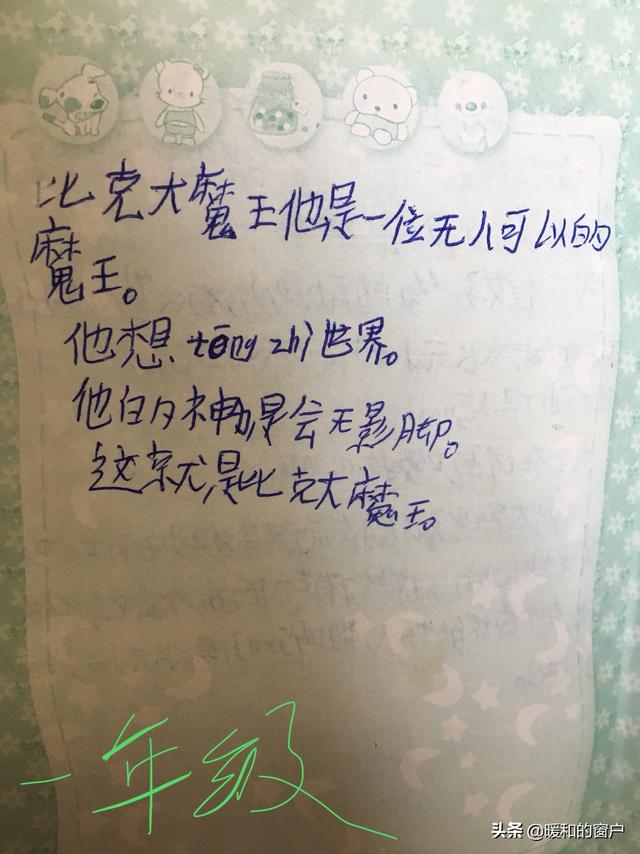 比克大魔王他是一位无人可以的
魔王。
他想tōng zhì世界。
他的神身会无影脚。
这就是比克大魔王。
一年级
头条 @暖和的窗户